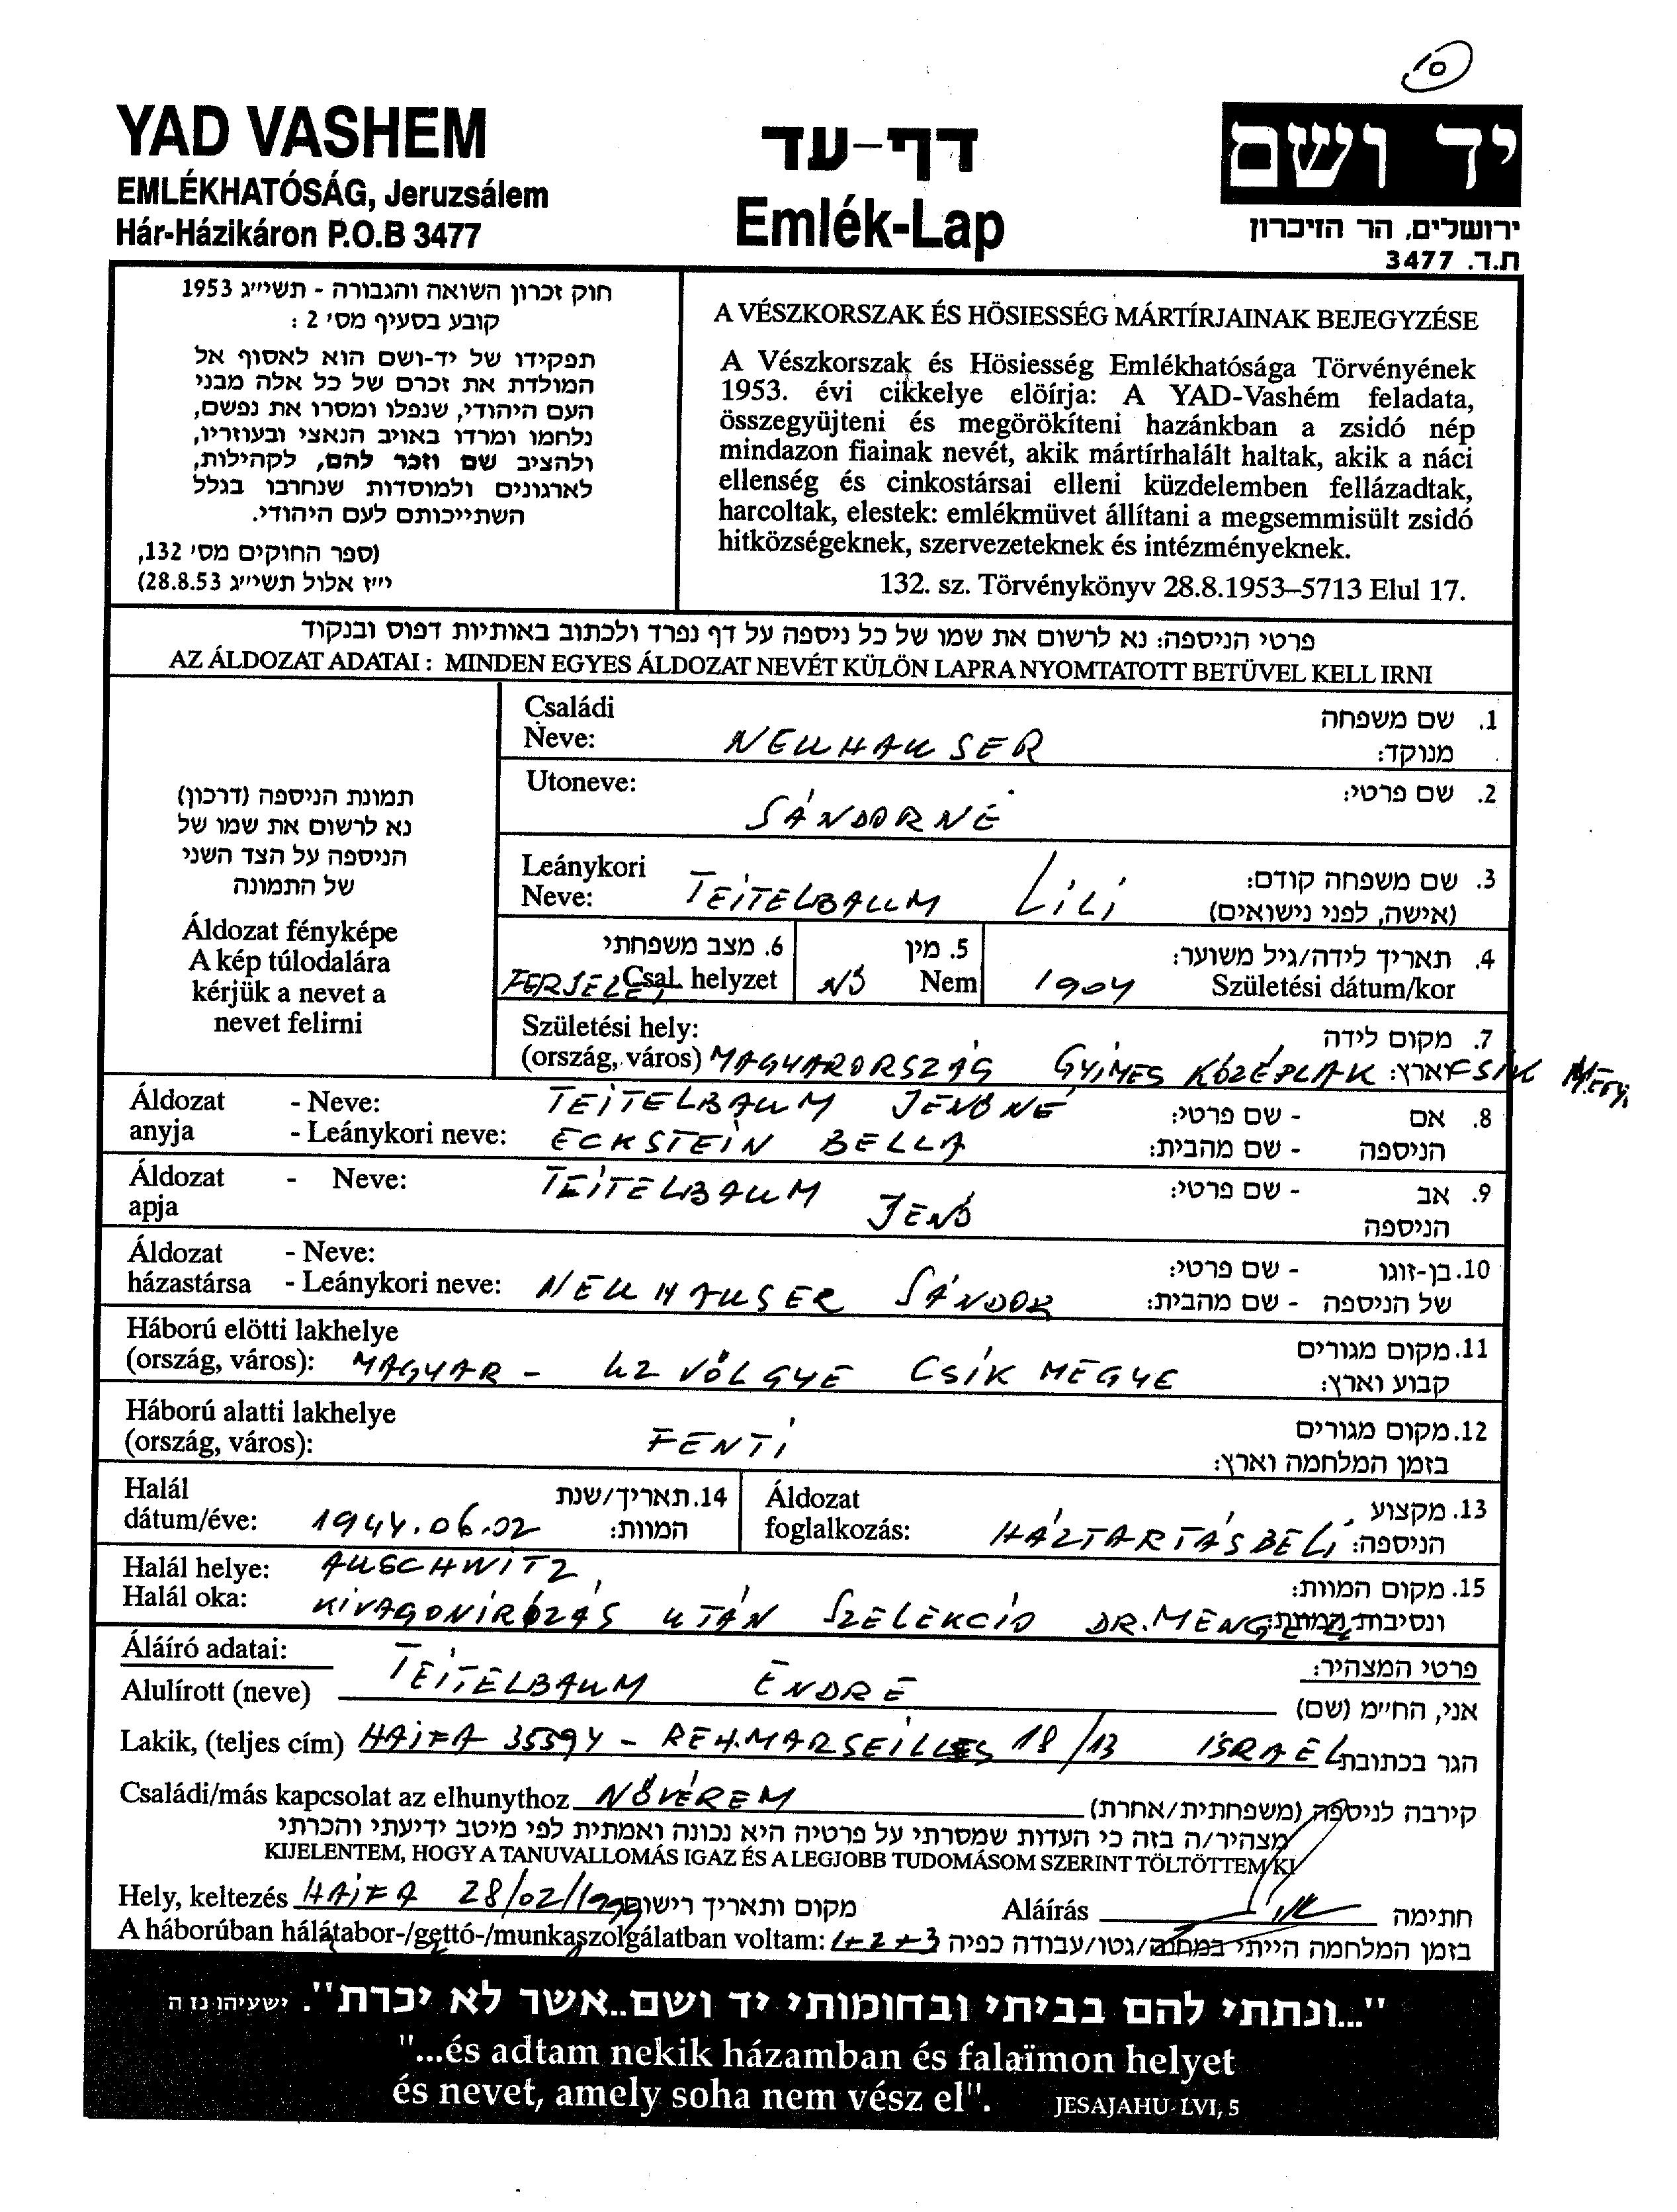 10
YAD VASHEM
EMLÉKHATÓSÁG, Jeruzsálem
Hár-Házikáron P.O.B 3477
דף-עד
Emlék-Lap
יד ושם
ירושלים, הר הזיכרון
ת.ד. 3477
חוק זכרון השואה והגבורה - תשי״ג 1953
קובע בסעיף מס׳ 2 :
תפקידו של יד-ושם הוא לאסוף אל
המולדת את זכרם של כל אלה מבני
העם היהודי, שנפלו ומסרו את נפשם,
נלחמו ומרדו באויב הנאצי ובעוזריו,
ולהציב שם וזכר להם, לקהילות,
לארגונים ולמוסדות שנחרבו בגלל
השתייכותם לעם היהודי.
(ספר החוקים מס׳ 132,
י״ז אלול תשי״ג 28.8.53)
A VÉSZKORSZAK ÉS HÖSIESSÉG MÁRTÍRJAINAK BEJEGYZÉSE
A Vészkorszak és Hösiesség Emlékhatósága Törvényének
1953. évi cikkelye elöírja: A YAD-Vashém feladata,
összegyüjteni és megörökíteni hazánkban a zsidó nép
mindazon fiainak nevét, akik mártírhalált haltak, akik a náci
ellenség és cinkostársai elleni küzdelemben fellázadtak,
harcoltak, elestek: emlékmüvet állítani a megsemmisült zsidó
hitközségeknek, szervezeteknek és intézményeknek.
132. sz. Törvénykönyv 28.8.1953–5713 Elul 17.
פרטי הניספה: נא לרשום את שמו של כל ניספה על דף נפרד ולכתוב באותיות דפוס ובנקוד
AZ ÁLDOZAT ADATAI : MINDEN EGYES ÁLDOZAT NEVÉT KÜLÖN LAPRA NYOMTATOTT BETÜVEL KELL IRNI
תמונת הניספה (דרכון)
נא לרשום את שמו של
הניספה על הצד השני
של התמונה
Áldozat fényképe
A kép túlodalára
kérjük a nevet a
nevet felirni
Családi
Neve: NEUHAUSER
1. שם משפחה
מנוקד:
Utoneve: SÁNDORNÉ
2. שם פרטי:
Leánykori
Neve: TEITELBAUM LiLi
3. שם משפחה קודם:
(אישה, לפני נישואים)
6. מצב משפחתי
Csal. helyzet
5. מין
NŐ Nem
4. תאריך לידה/גיל משוער:
1904 Születési dátum/kor
Születési hely:
(ország, város) MAGYARORSZÁG GYIMES KÖZÉPLAK CSIK Megy.
7. מקום לידה
וארץ:
Áldozat - Neve: TEITELBAUM JENŐNÉ
anyja - Leánykori neve: ECKSTEIN BELLA
8. אם - שם פרטי:
הניספה - שם מהבית:
Áldozat - Neve: TEITELBAUM JENŐ
apja
9. אב - שם פרטי:
הניספה
Áldozat - Neve:
házastársa - Leánykori neve: NEUHAUSER SÁNDOR
10. בן-זוגו - שם פרטי:
של הניספה - שם מהבית:
Háború elötti lakhelye
(ország, város): MAGYAR - UZ VÖLGYE CSÍK MEGYE
11. מקום מגורים
קבוע וארץ:
Háború alatti lakhelye
(ország, város): FENTI
12. מקום מגורים
בזמן המלחמה וארץ:
Halál
dátum/éve: 1944.06.02
14. תאריך/שנת
המוות:
Áldozat
foglalkozás: HÁZTARTÁSBELI
13. מקצוע
הניספה:
Halál helye: AUSCHWITZ,
Halál oka: KIVAGONIROZÁS UTÁN SZELEKCIÓ DR. MENGELE
15. מקום המוות:
ונסיבות המוות:
Áláíró adatai:
פרטי המצהיר:
Alulírott (neve) TEITELBAUM ENDRE
אני, החי״מ (שם)
Lakik, (teljes cím) HAIFA 35394 - REH. MARSEILLES 18/13 ISRAEL
הגר בכתובת
Családi/más kapcsolat az elhunythoz NŐVÉREM
קירבה לניספה (משפחתית/אחרת)
מצהיר/ה בזה כי העדות שמסרתי על פרטיה היא נכונה ואמתית לפי מיטב ידיעתי והכרתי
KIJELENTEM, HOGY A TANUVALLOMÁS IGAZ ÉS A LEGJOBB TUDOMÁSOM SZERINT TÖLTÖTTEM KI
Hely, keltezés HAIFA 28/02/
מקום ותאריך רישום
Aláírás
חתימה
A háborúban hálátabor-/gettó-/munkaszolgálatban voltam: 1+2+3
בזמן המלחמה הייתי במחנה/גטו/עבודה כפיה
"...ונתתי להם בביתי ובחומותי יד ושם..אשר לא יכרת". ישעיהו נז ה
"...és adtam nekik házamban és falaïmon helyet
és nevet, amely soha nem vész el". JESAJAHU LVI, 5